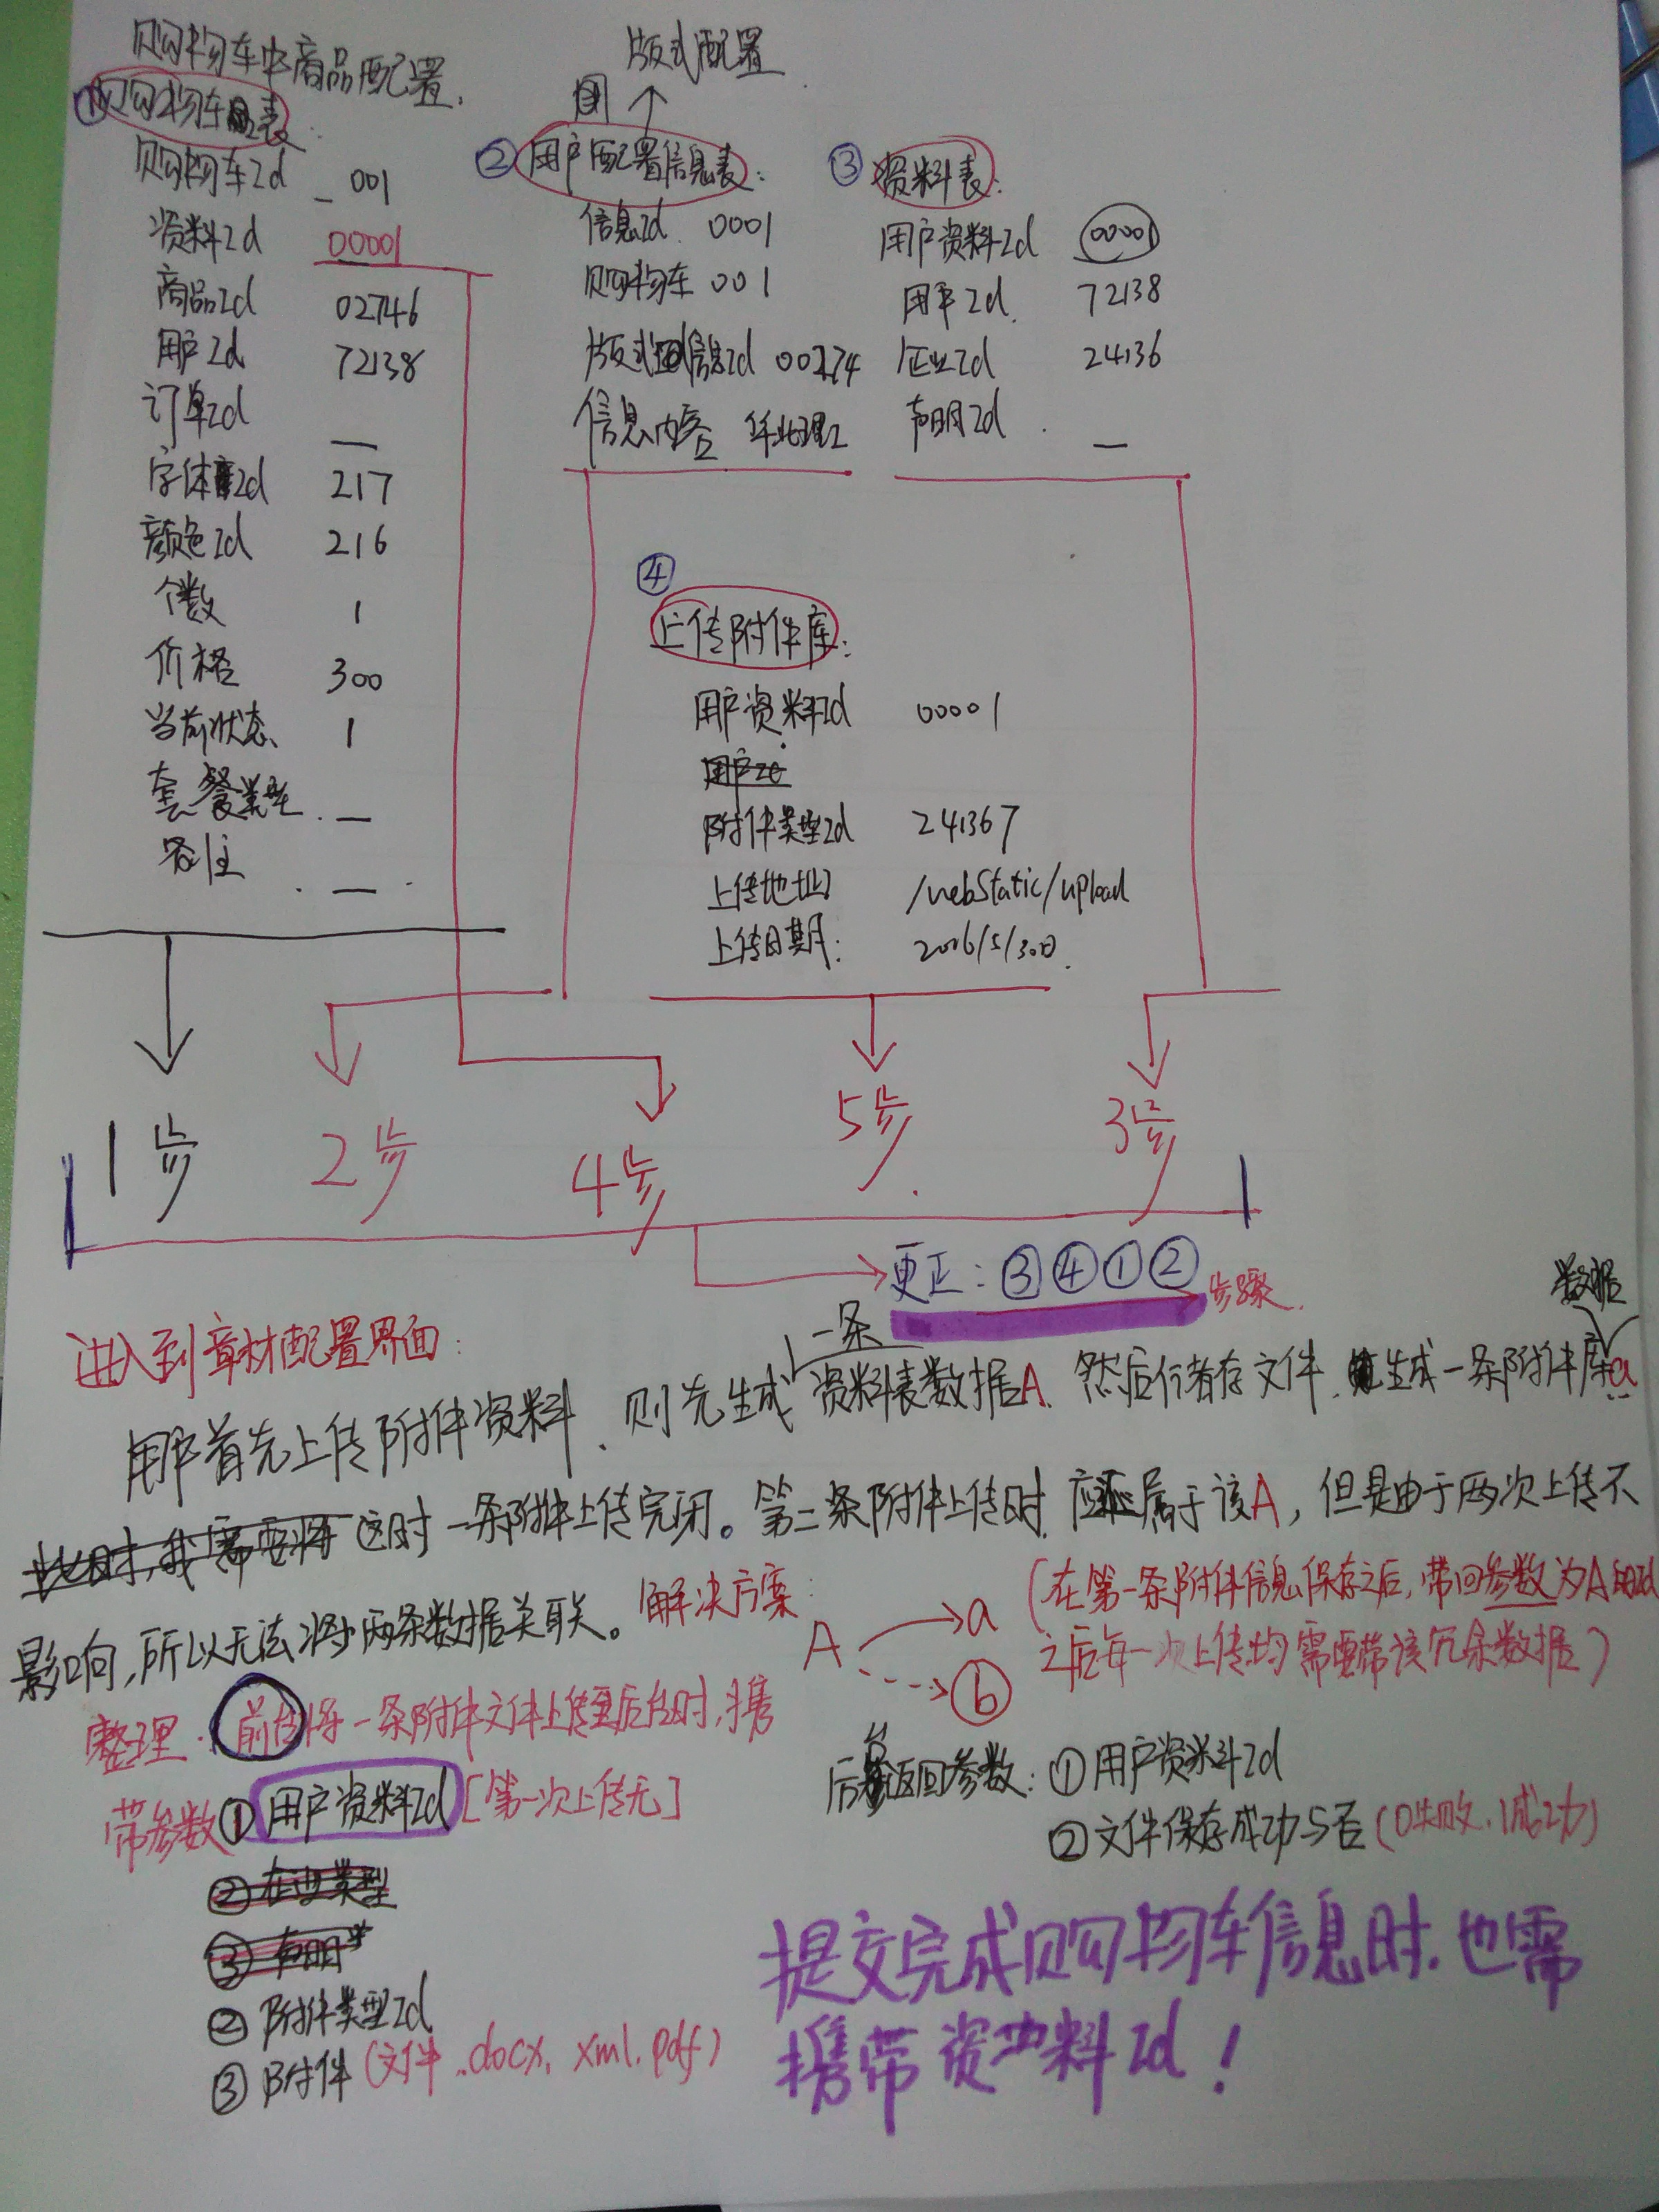 购物车中商品配置.
① 购物车表:
购物车Id _001
资料Id 00001
商品Id 02746
用户Id 72138
订单Id —
字体Id 217
颜色Id 216
个数 1
价格 300
当前状态 1
套餐类型. —
备注 —
版式配置
② 用户配置信息表:
信息Id. 0001
购物车 001
版式信息Id 00274
信息内容
③ 资料表:
用户资料Id 00001
用户Id. 72138
企业Id 24136
声明Id. —
④
上传附件库:
用户资料Id 00001
用户Id
附件类型Id 241367
上传地址 /webStatic/upload
上传日期: 2016/5/30日.
1步 2步 4步 5步 3步
更正: ③④①② 步骤.
进入到章材配置界面:
用户首先上传附件资料、则先生成一条资料表数据A. 然后保存文件. 生成一条附件库数据a
此时,我需要将 这时一条附件上传完毕。第二条附件上传时. 应还属于该A, 但是由于两次上传不
影响,所以无法将两条数据关联。解决方案:
A a b
(在第一条附件信息保存之后,带回参数为A的Id
之后每一次上传均需要带该冗余数据)
整理. 前台将一条附件文件上传到后台时,携
带参数 ① 用户资料Id [第一次上传无]
③ 声明
② 附件类型Id
③ 附件 (文件 .docx, xml. pdf)
后台返回参数: ① 用户资料Id
② 文件保存成功与否 (0失败. 1成功)
提交完成购物车信息时.也需
携带资料Id!